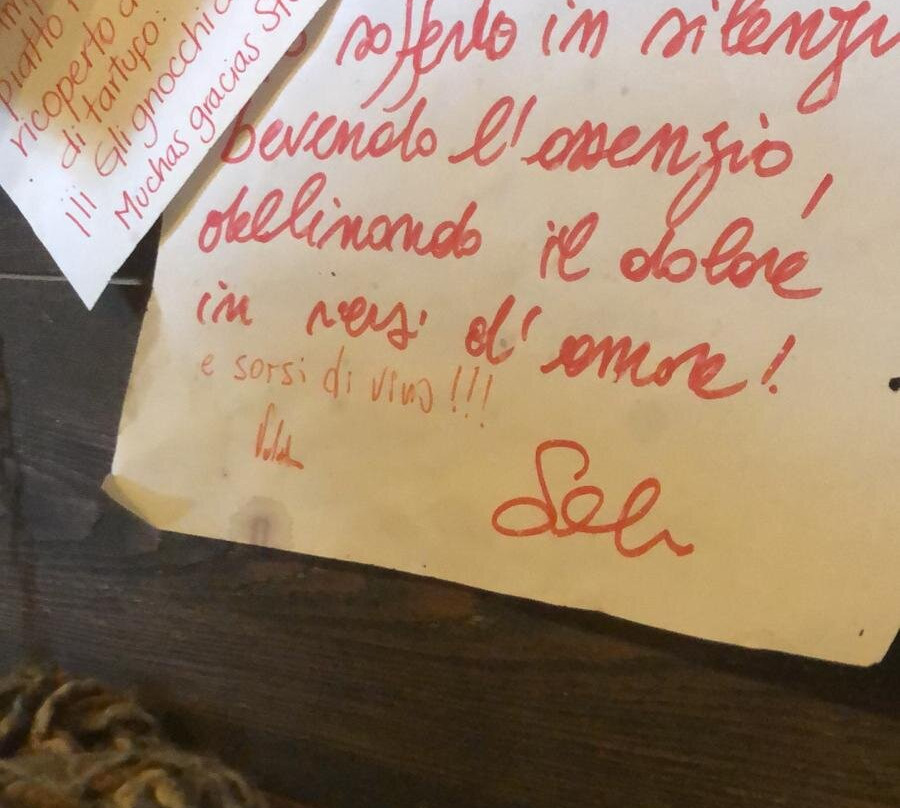 piatto
ricoperto
di tartufo:
!!! Gli gnocchi
Muchas gracias
sofferto in silenzi
bevendo l'assenzio,
il dolore
in versi d'amore!
e sorsi di vino!!!